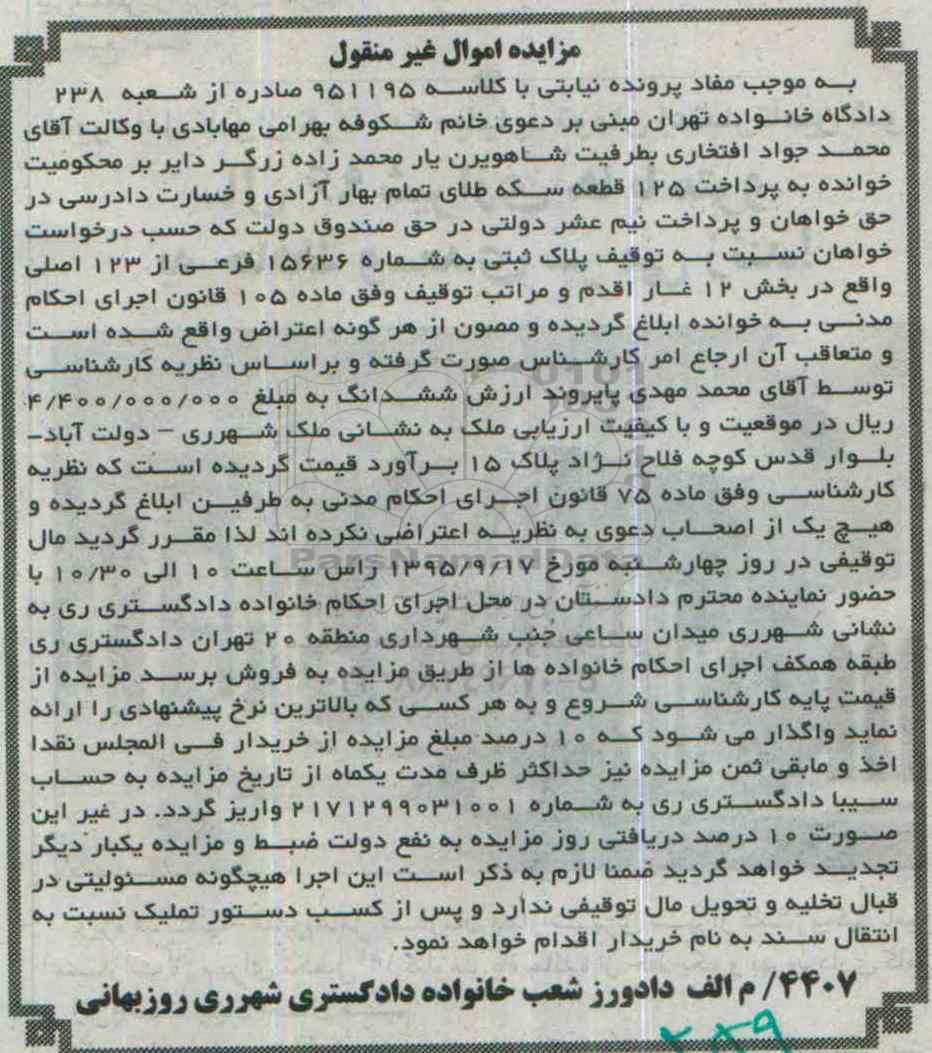 مزایده اموال غیر منقول
به موجب مفاد پرونده نیابتی با کلاسه ۹۵۱۱۹۵ صادره از شعبه ۲۳۸
دادگاه خانواده تهران مبنی بر دعوی خانم شکوفه بهرامی مهابادی با وکالت آقای
محمد جواد افتخاری بطرفیت شاهویرن یار محمد زاده زرگر دایر بر محکومیت
خوانده به پرداخت ۱۲۵ قطعه سکه طلای تمام بهار آزادی و خسارت دادرسی در
حق خواهان و پرداخت نیم عشر دولتی در حق صندوق دولت که حسب درخواست
خواهان نسبت به توقیف پلاک ثبتی به شماره ۱۵۶۳۶ فرعی از ۱۲۳ اصلی
واقع در بخش ۱۲ غار اقدم و مراتب توقیف وفق ماده ۱۰۵ قانون اجرای احکام
مدنی به خوانده ابلاغ گردیده و مصون از هر گونه اعتراض واقع شده است
و متعاقب آن ارجاع امر کارشناس صورت گرفته و براساس نظریه کارشناسی
توسط آقای محمد مهدی پایروند ارزش ششدانگ به مبلغ ۴/۴۰۰/۰۰۰/۰۰۰
ریال در موقعیت و با کیفیت ارزیابی ملک به نشانی ملک شهرری – دولت آباد–
بلوار قدس کوچه فلاح نژاد پلاک ۱۵ برآورد قیمت گردیده است که نظریه
کارشناسی وفق ماده ۷۵ قانون اجرای احکام مدنی به طرفین ابلاغ گردیده و
هیچ یک از اصحاب دعوی به نظریه اعتراضی نکرده اند لذا مقرر گردید مال
توقیفی در روز چهارشنبه مورخ ۱۳۹۵/۹/۱۷ راس ساعت ۱۰ الی ۱۰/۳۰ با
حضور نماینده محترم دادستان در محل اجرای احکام خانواده دادگستری ری به
نشانی شهرری میدان ساعی جنب شهرداری منطقه ۲۰ تهران دادگستری ری
طبقه همکف اجرای احکام خانواده ها از طریق مزایده به فروش برسد مزایده از
قیمت پایه کارشناسی شروع و به هر کسی که بالاترین نرخ پیشنهادی را ارائه
نماید واگذار می شود که ۱۰ درصد مبلغ مزایده از خریدار فی المجلس نقدا
اخذ و مابقی ثمن مزایده نیز حداکثر ظرف مدت یکماه از تاریخ مزایده به حساب
سیبا دادگستری ری به شماره ۲۱۷۱۲۹۹۰۳۱۰۰۱ واریز گردد. در غیر این
صورت ۱۰ درصد دریافتی روز مزایده به نفع دولت ضبط و مزایده یکبار دیگر
تجدید خواهد گردید ضمنا لازم به ذکر است این اجرا هیچگونه مسئولیتی در
قبال تخلیه و تحویل مال توقیفی ندارد و پس از کسب دستور تملیک نسبت به
انتقال سند به نام خریدار اقدام خواهد نمود.
۴۴۰۷/ م الف دادورز شعب خانواده دادگستری شهرری روزبهانی
ParsNamadData